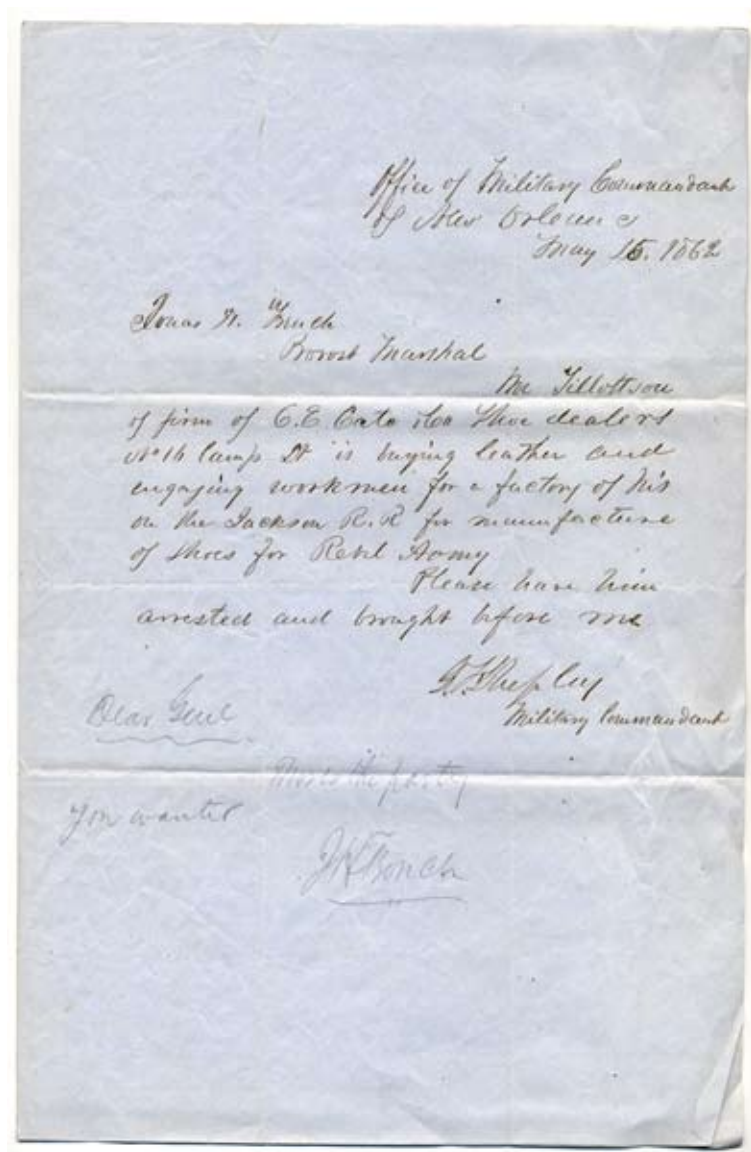 Office of Military Commandant
of New Orleans
May 15. 1862
Jonas H. French
Provost Marshal
Mr Tillottson
of firm of C.E. Cate & Co Shoe dealers
No 16 Camp St is buying leather and
engaging workmen for a factory of his
on the Jackson R.R for manufacture
of Shoes for Rebel Army
Please have him
arrested and brought before me
G F Shepley
Military Commandant
Dear Genl
This is the party
you wanted
J H French